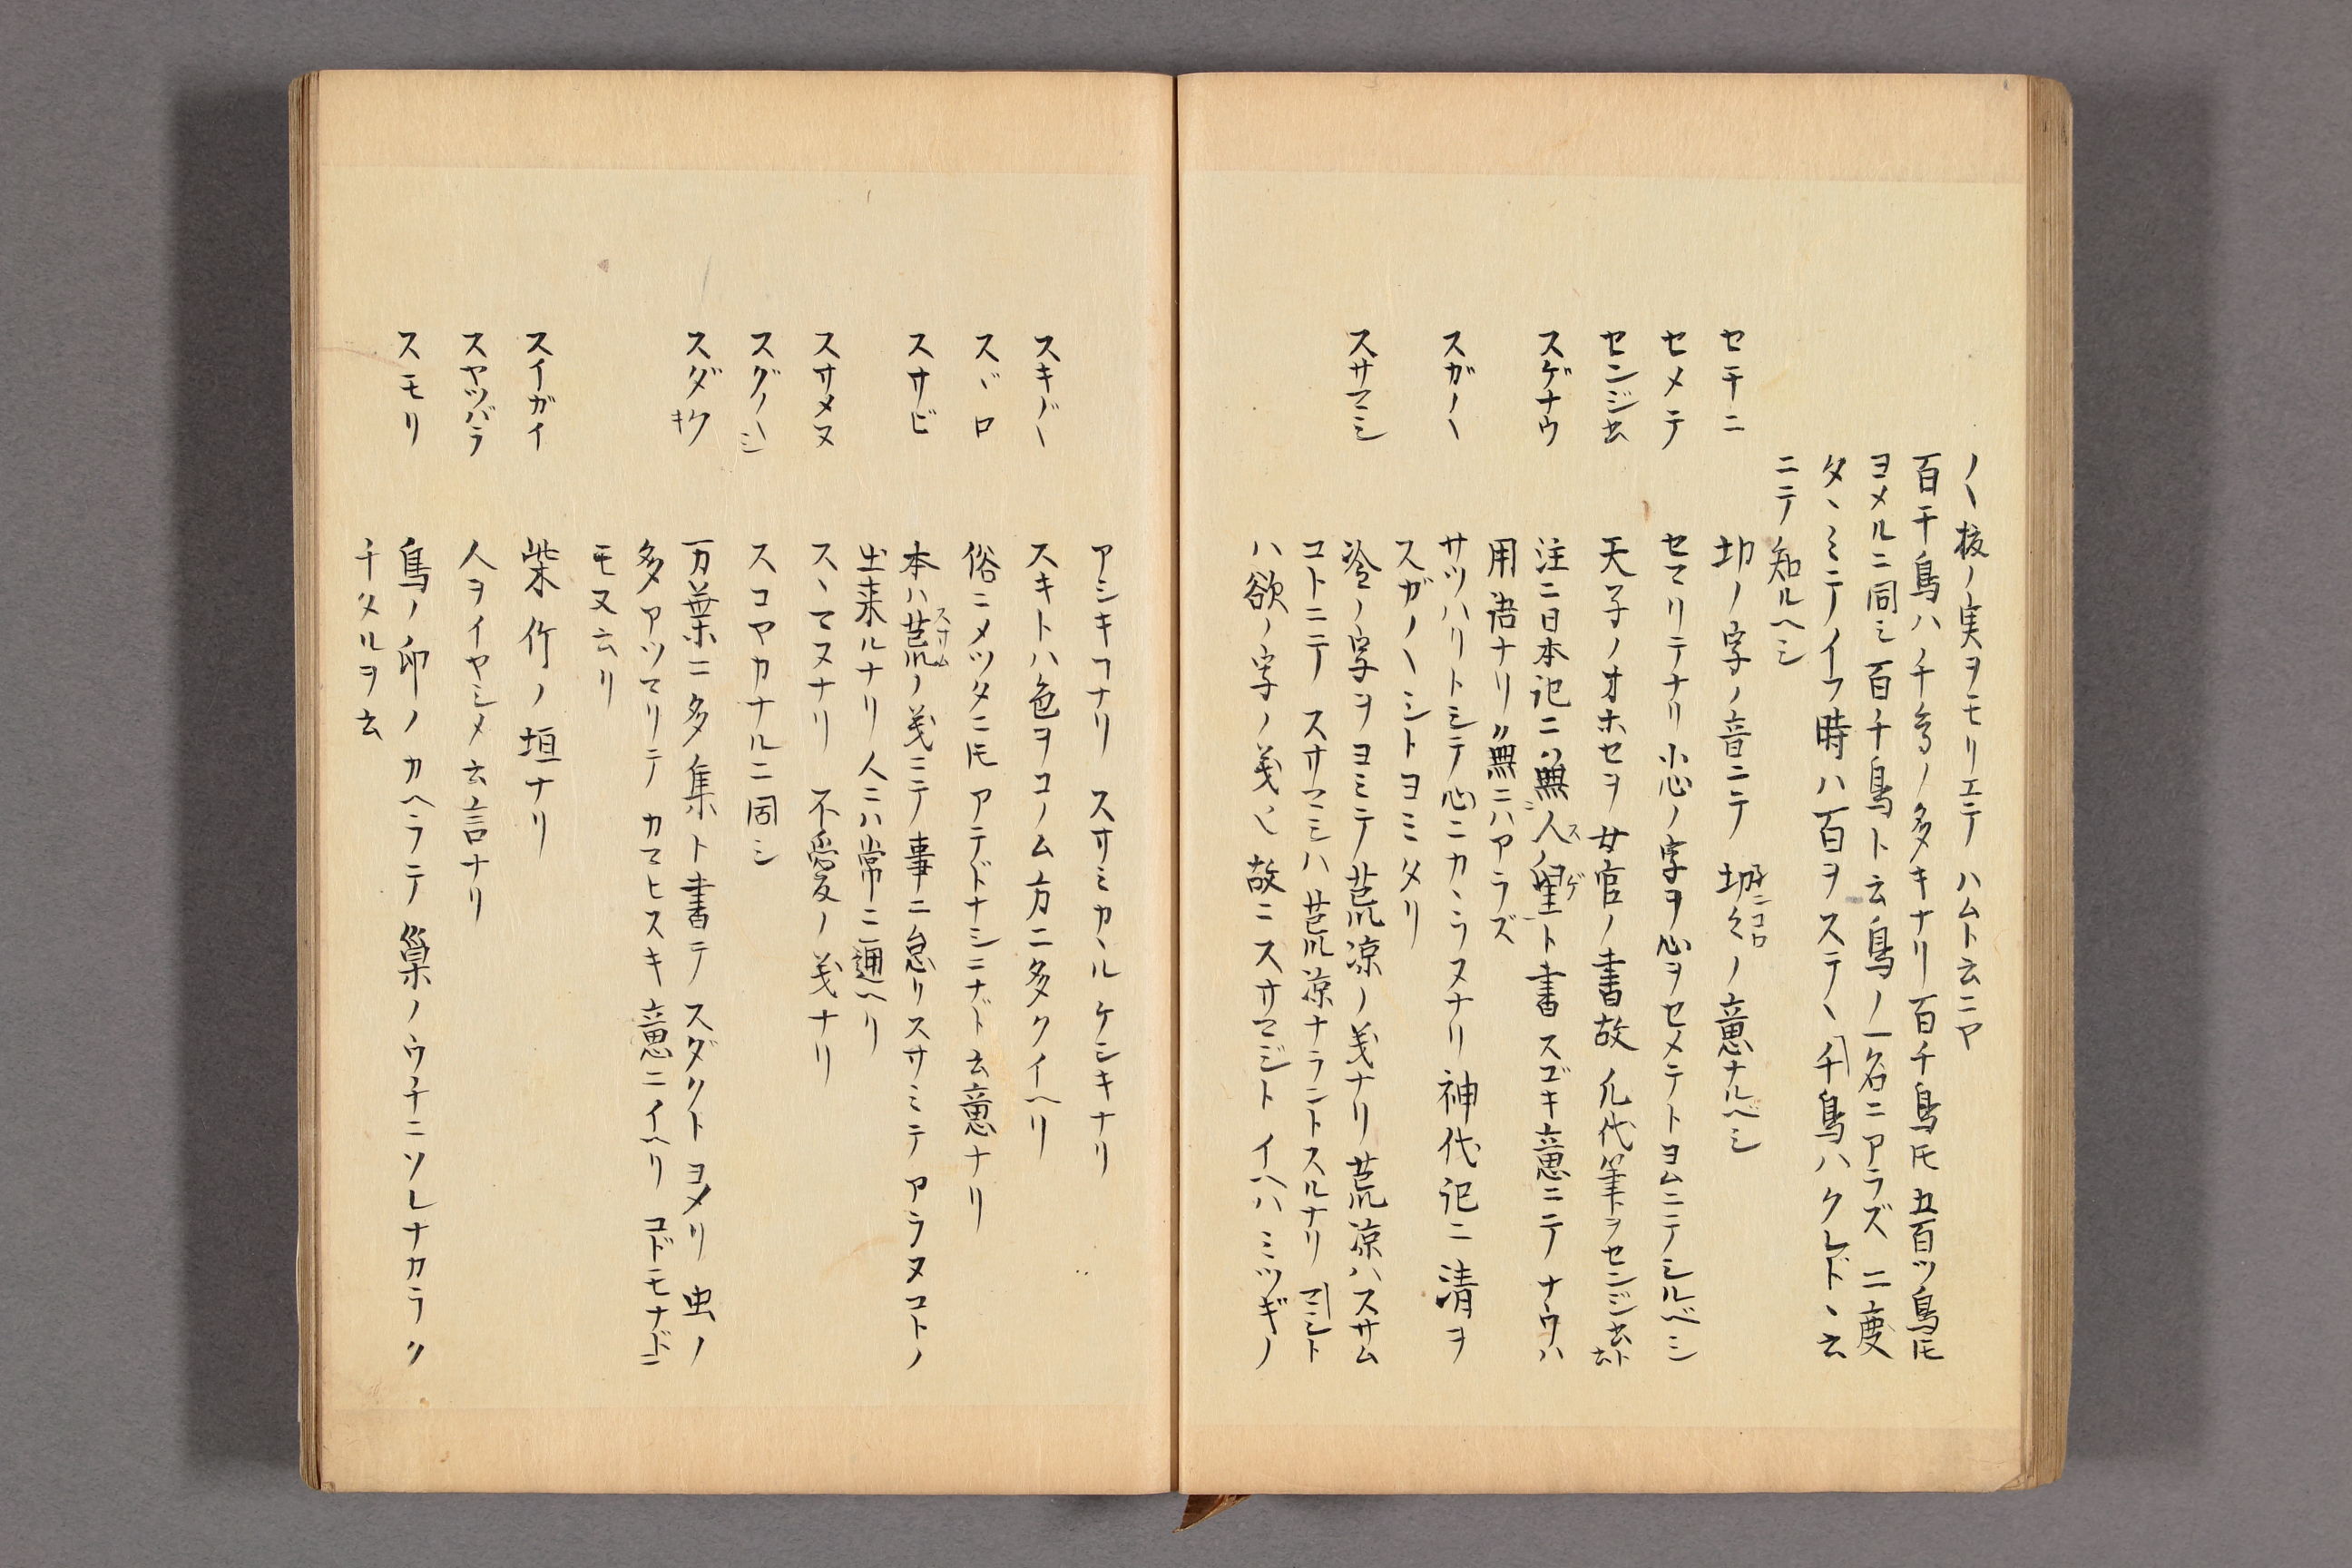 〳〵核ノ実ヲモリエテ ハムト云ニヤ
百千鳥ハノ千鳥ノ多キナリ百千鳥ㇳモ五百ツ鳥ㇳモ
ヨメルニ同シ百千鳥ト云鳥ノ一名ニアラズ二度
タヽミテノイフ時ハ百ヲステヽ千鳥ハクレドヽ云
ニテ知ルヘシ
セチニ 切ノ字ノ音ニテ 切ニコロノ意ナルベシ
セメテ セマリテナリ小心ノ字ヲ心ヲセメテトヨムニテシルベシ
センジ云 天子ノオホセヲ女官ノ書故凡代筆ヲセンジ云ト云
スゲナウ 注ニ日本記ニ無人聖ト書スゴキ意ニテナウハ
用語ナリ無ニハアラズ
スガ〳〵 サツハリトシテ心ニカヽラヌナリ神代記ニ清ヲ
スガ〳〵シトヨミタリ
スサマシ 冷ノ字ヲヨミテ荒涼ノ義ナリ荒涼ハスサム
コトニテスサマシハ荒涼ナラントスルナリマシト
ハ欲ノ字ノ義也故ニスサマジトイヘハミツギノ
アシキコナリ スサミカヽルケシキナリ
スキ〴〵 スキトハ色ヲコノム方ニ多クイヘリ
スヾロ 俗ニメツタニㇳモアテドナシニナドト云意ナリ
スサビ 本ハ荒スサムノ義ニテ事ニ怠リスサミテアラヌコトノ
出来ルナリ人ニハ常ニ通ヘリ
スサメヌ スヽマヌナリ 不愛ノ義ナリ
スグ〳〵シ スコヤカナルニ同シ
スダク キ 万葉ニ多集ト書テスダクトヨメリ虫ノ
多アツマリテカマヒスキ意ニイヘリコドモナドニ
モ又云リ
スイガイ 柴竹ノ垣ナリ
スヤツバラ 人ヲイヤシメ云言ナリ
スモリ 鳥ノ卵ノカヘラテ巣ノウチニソレナカラク
チタルヲ云